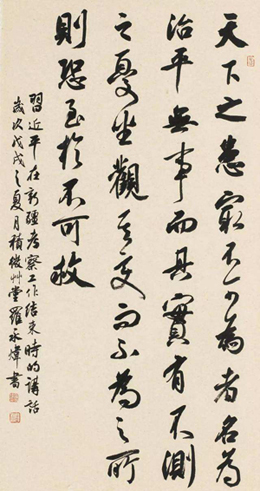 天下之患㝡不可為者名為
治平無事而其實有不測
之憂坐觀其變而不為之所
則恐至於不可救
習近平在新疆考察工作結束時的講話
歲次戊戌之夏月積微艸堂羅永煒書